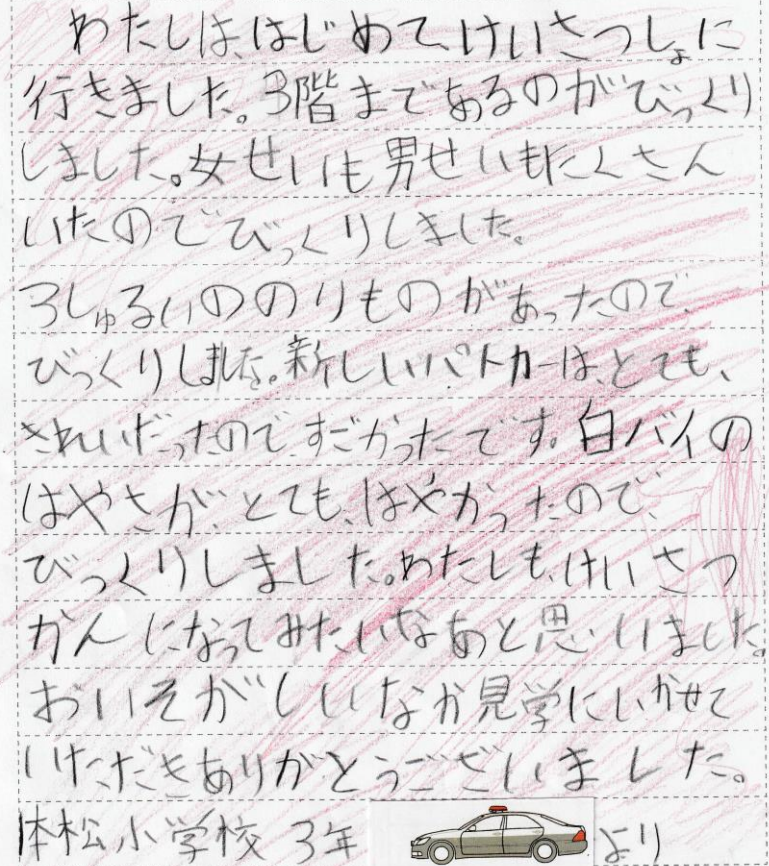 わたしは、はじめて、けいさつしょに
行きました。3階まであるのがびっくり
しました。女せいも男せいもたくさん
いたのでびっくりしました。
3しゅるいののりものがあったので、
びっくりしました。新しいパトカーは、とても、
きれいだったので、すごかったです。白バイの
はやさが、とても、はやかったので、
びっくりしました。わたしも、けいさつ
かんになってみたいなあと思いました。
おいそがしいなか見学にいかせて
いただきありがとうございました。
本松小学校 3年 より